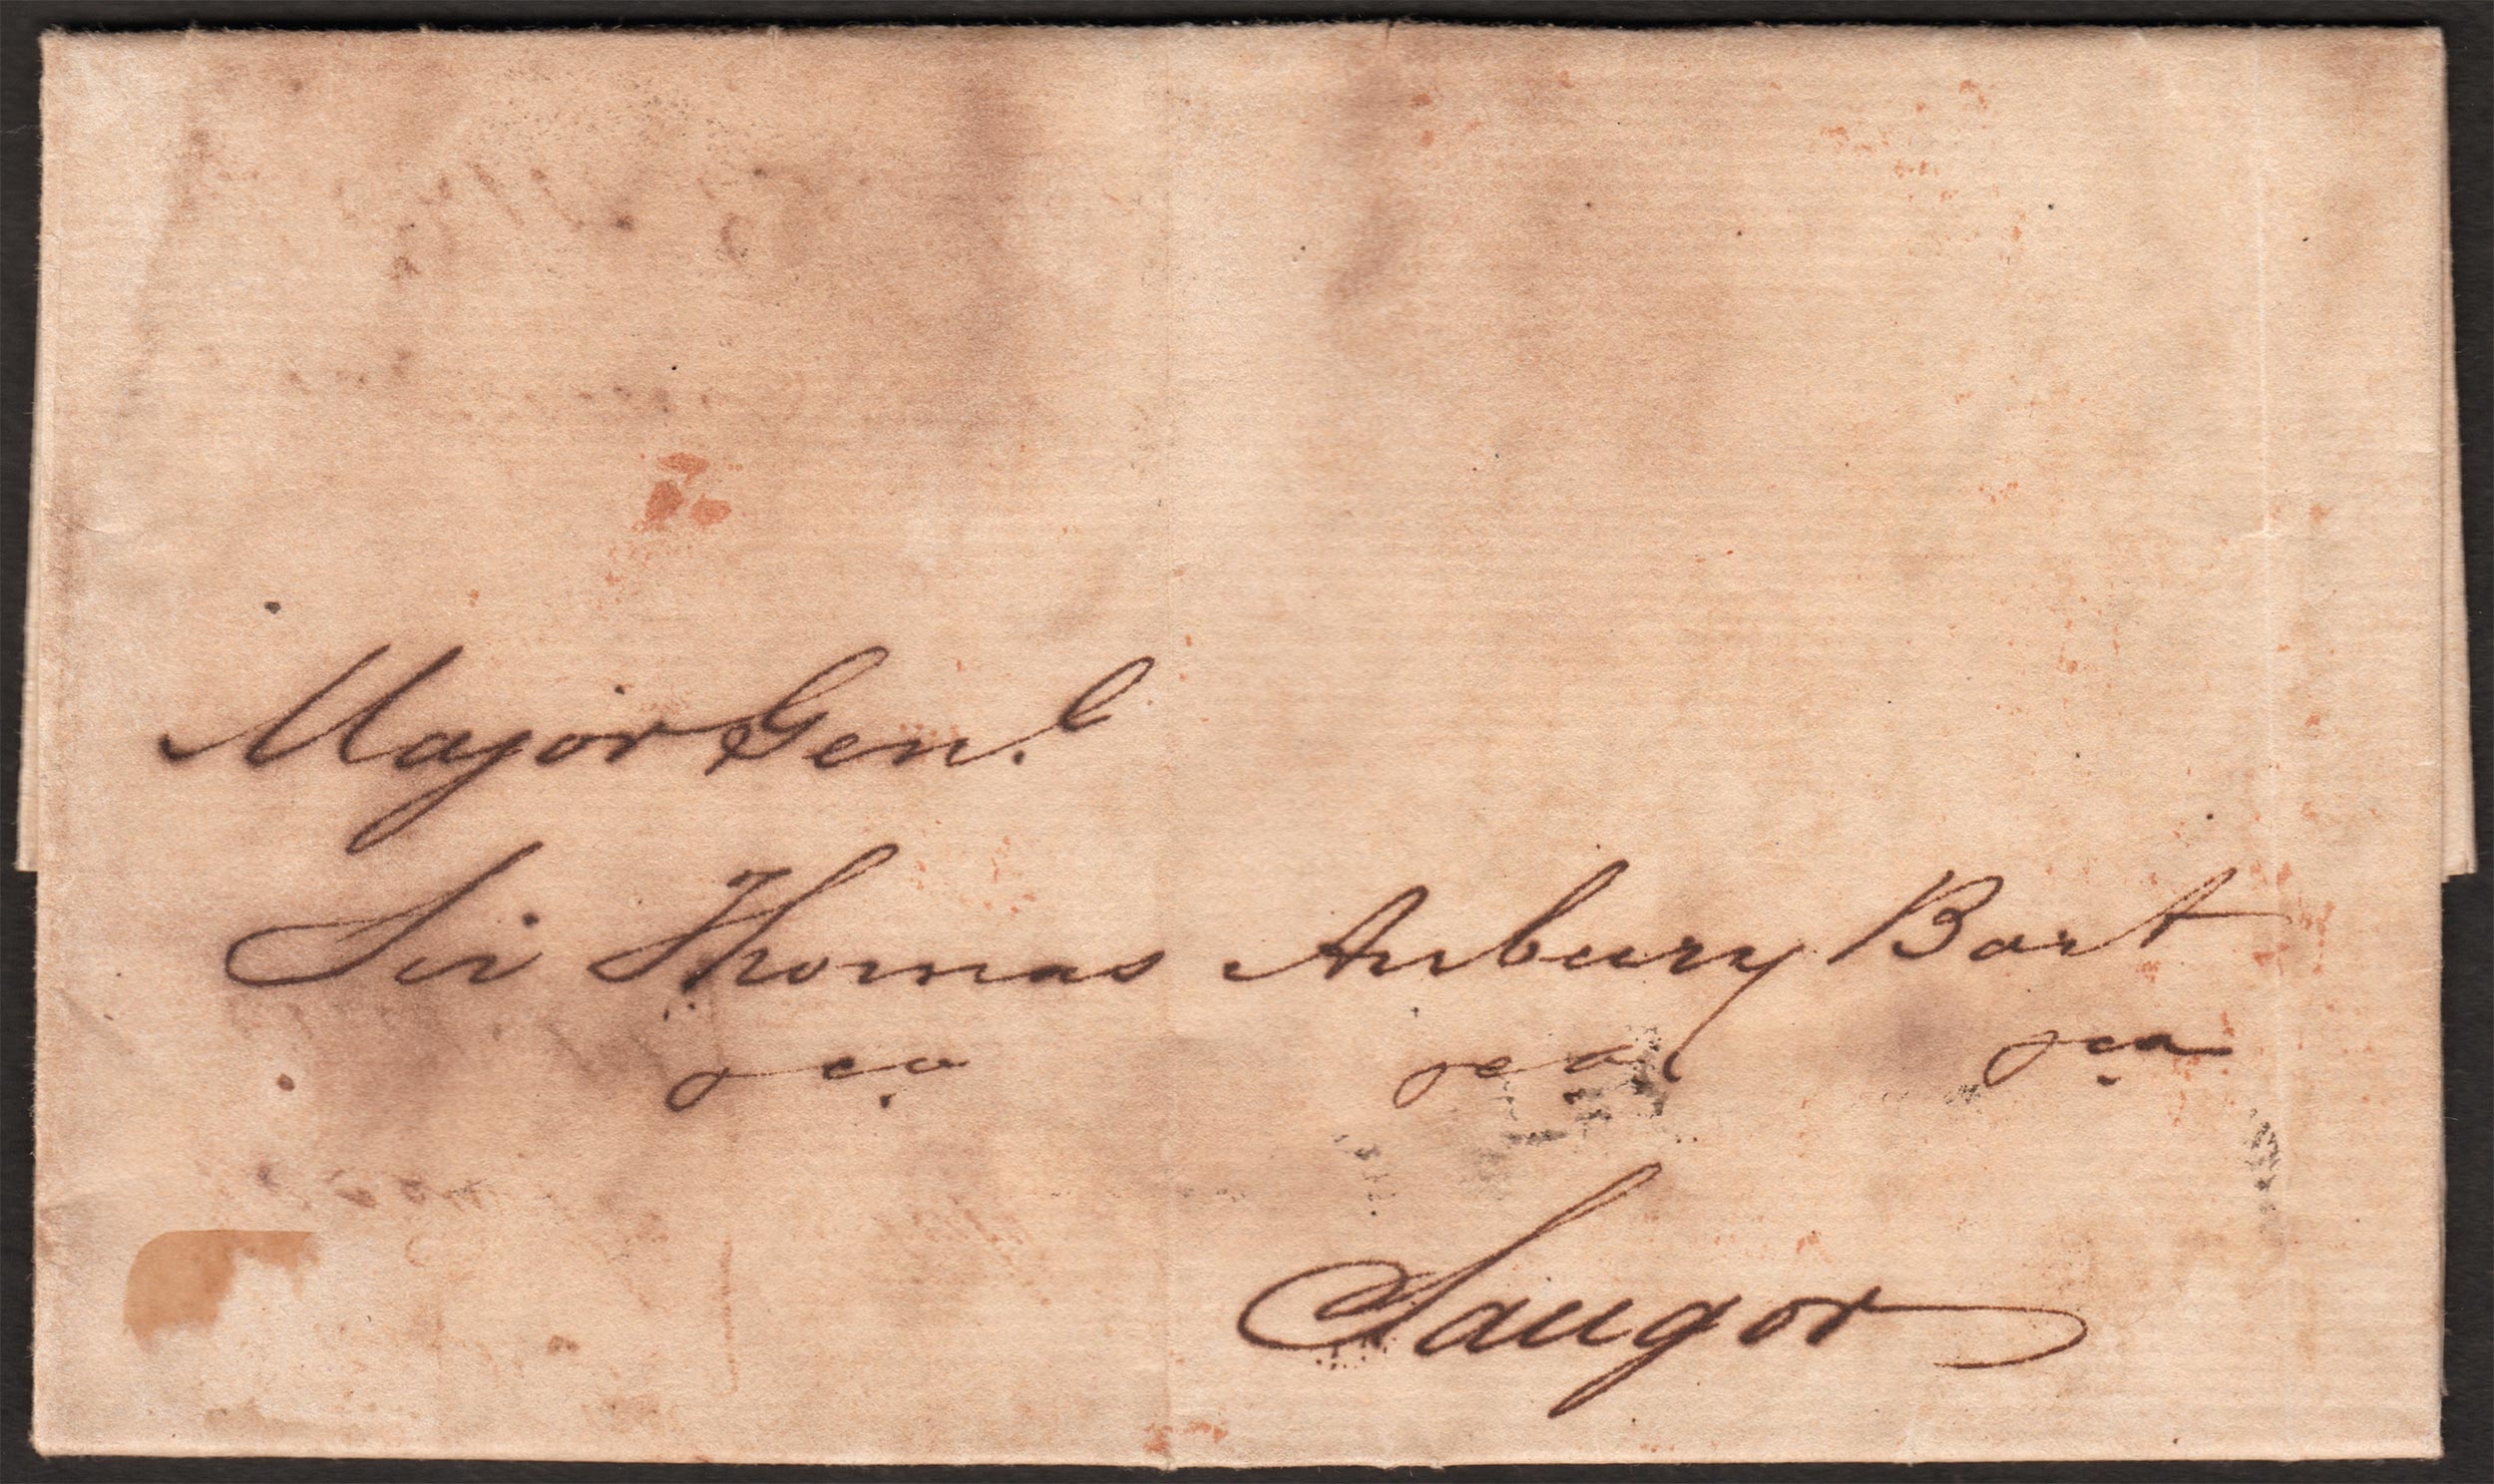 Major Gen.l
Sir Thomas Anbury Bart
&ca &ca &ca
Saugor